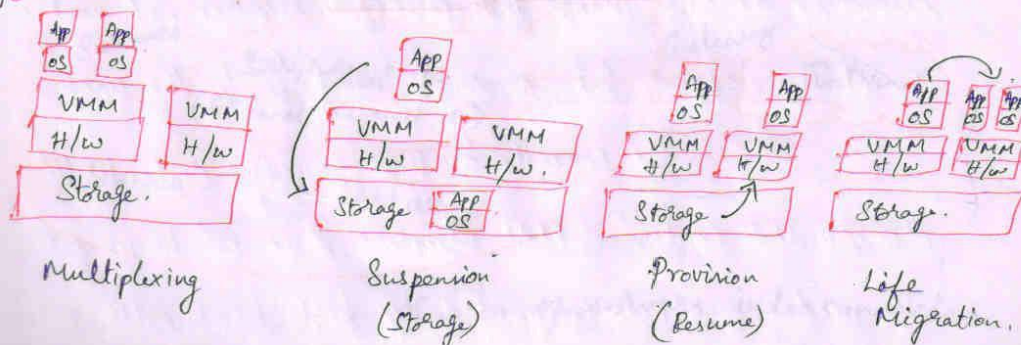 App App
OS OS
VMM
H/W
VMM
H/W
Storage.
Multiplexing
App
OS
VMM
H/W
VMM
H/W.
Storage
App
OS
Suspension
(Storage)
App
OS
App
OS
VMM
H/W
VMM
H/W
Storage
Provision
(Resume)
App
OS
App
OS
App
OS
VMM
H/W
VMM
H/W
Storage.
Life
Migration.